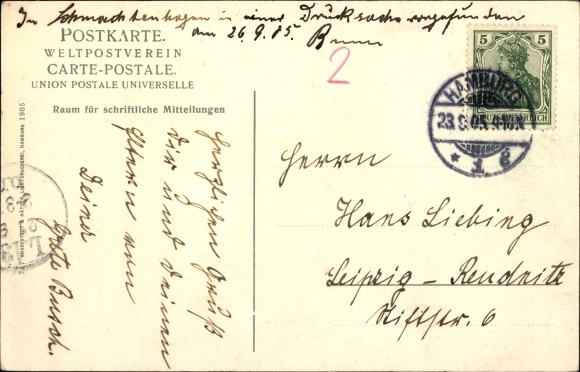 In Schmachtenhagen in einer Drucksache vorgefunden
am 26.9.05. 
POSTKARTE.
WELTPOSTVEREIN
CARTE-POSTALE.
UNION POSTALE UNIVERSELLE
2
Raum für schriftliche Mitteilungen
5 5
HAMBURG
23.9.05.
* 1 e
Herzlichen Gruß
Dir und Deinen
Eltern von
Deiner
Grete Busch.
Herrn
Hans Liebing
Leipzig – Reudnitz
Stiftstr. 6
HAMBURG 1905